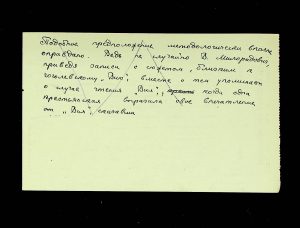 Подобное предположение методологически вполне
оправдано. Ведь не случайно В. Милорадович,
приведя записи с сюжетом, близким к
гоголевскому „Вию“, вместе с тем упоминает
о случае чтения „Вия“, когда одна
крестьянка выразила свое впечатление
от „Вия“, сказавши